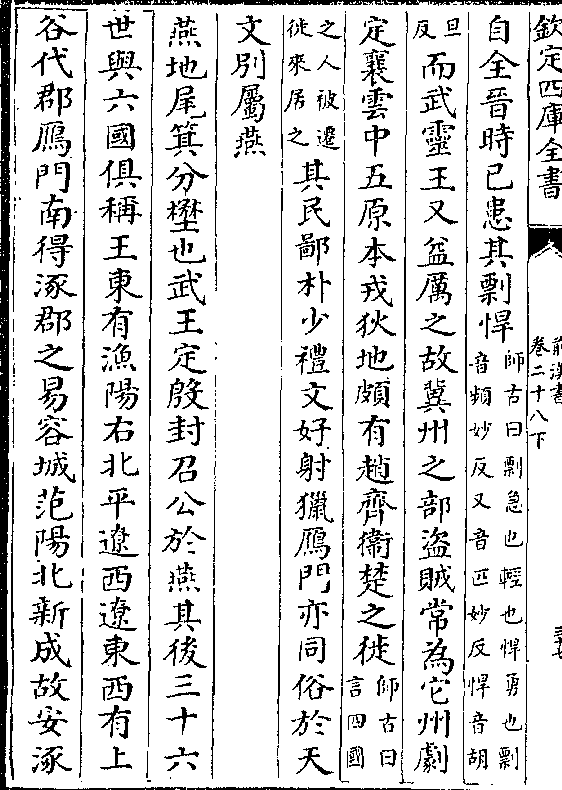 欽定四庫全書
前漢書
卷二十八下
自全晉時已患其剽悍師古曰剽急也輕也悍勇也剽音頻妙反又音匹妙反悍音胡
旦反而武靈王又益厲之故冀州之部盜賊常為它州劇
定襄雲中五原本戎狄地頗有趙齊衛楚之徙師古曰言四國
之人被遷徙來居之其民鄙朴少禮文好射獵鴈門亦同俗於天
文別屬燕
燕地尾箕分壄也武王定殷封召公於燕其後三十六
世與六國俱稱王東有漁陽右北平遼西遼東西有上
谷代郡鴈門南得涿郡之易容城范陽北新成故安涿